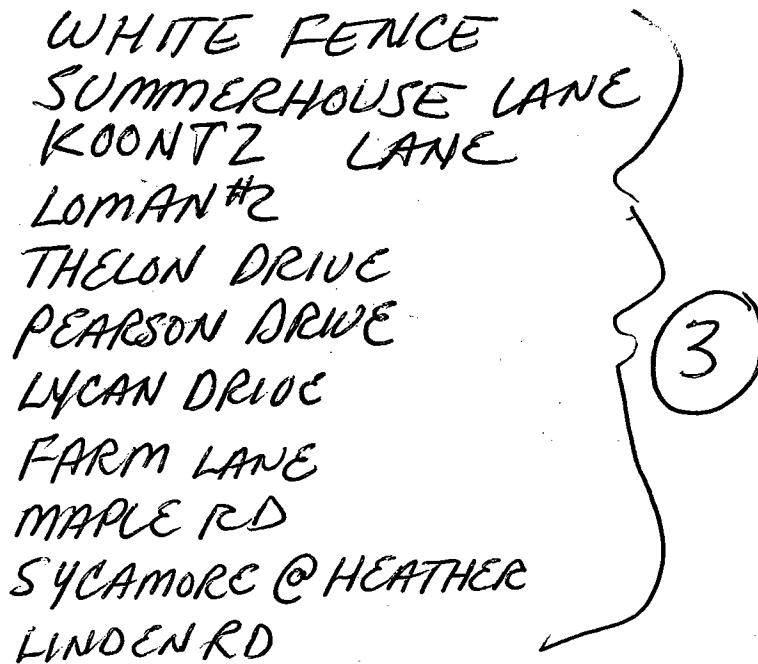 WHITE FENCE
SUMMERHOUSE LANE
KOONTZ LANE
LOMAN #2
THELON DRIVE
PEARSON DRIVE
LYCAN DRIVE
FARM LANE
MAPLE RD
SYCAMORE @ HEATHER
LINDEN RD
3